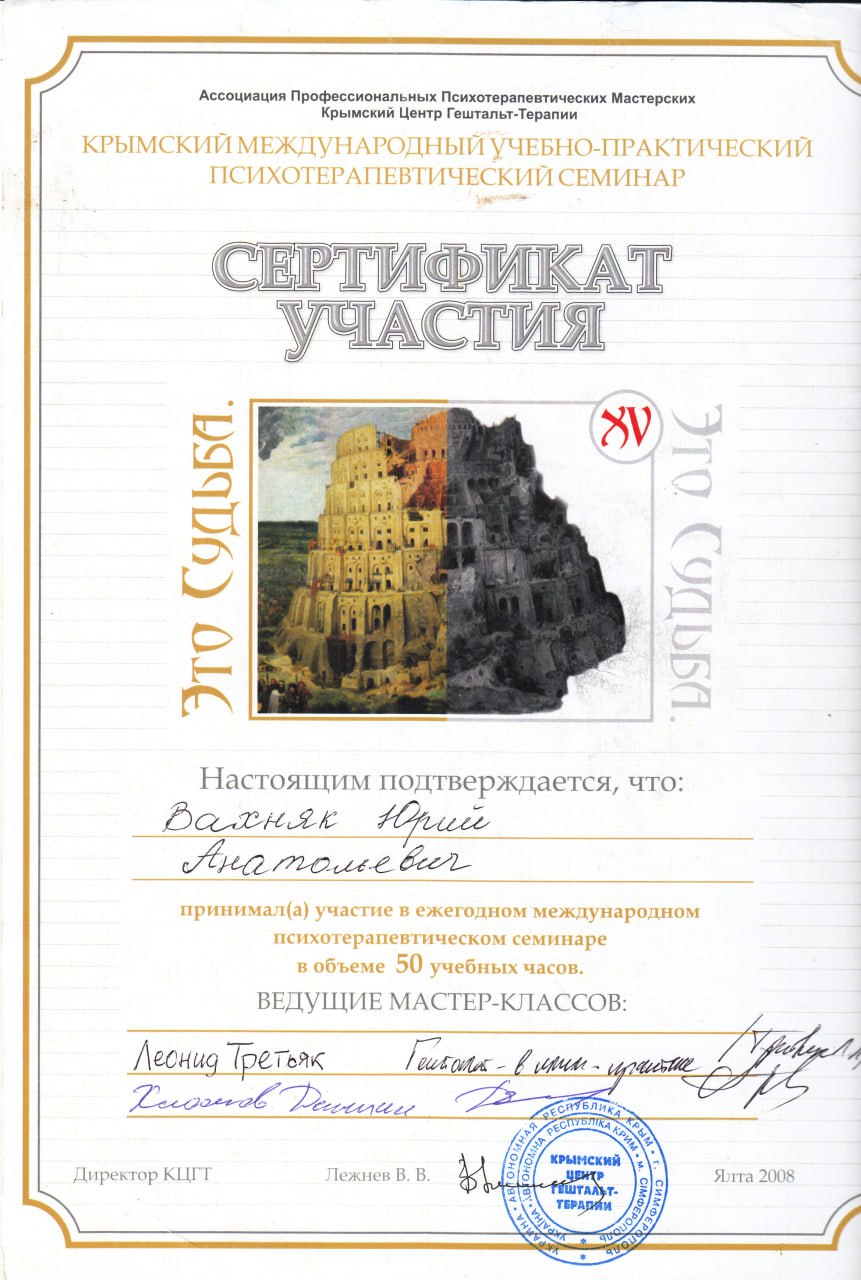 Ассоциация Профессиональных Психотерапевтических Мастерских
Крымский Центр Гештальт-Терапии
КРЫМСКИЙ МЕЖДУНАРОДНЫЙ УЧЕБНО-ПРАКТИЧЕСКИЙ
ПСИХОТЕРАПЕВТИЧЕСКИЙ СЕМИНАР
СЕРТИФИКАТ
УЧАСТИЯ
Это Судьба.
XV
Это Судьба.
Настоящим подтверждается, что:
Вахняк Юрий
Анатольевич
принимал(а) участие в ежегодном международном
психотерапевтическом семинаре
в объеме 50 учебных часов.
ВЕДУЩИЕ МАСТЕР-КЛАССОВ:
Леонид Третьяк Гештальт - в
Хломов Даниил
Директор КЦГТ Лежнев В. В. Ялта 2008
УКРАИНА • АВТОНОМНАЯ РЕСПУБЛИКА КРЫМ • г. СИМФЕРОПОЛЬ
УКРАЇНА • АВТОНОМНА РЕСПУБЛІКА КРИМ • м. СІМФЕРОПОЛЬ
КРЫМСКИЙ
ЦЕНТР
ГЕШТАЛЬТ-
ТЕРАПИИ